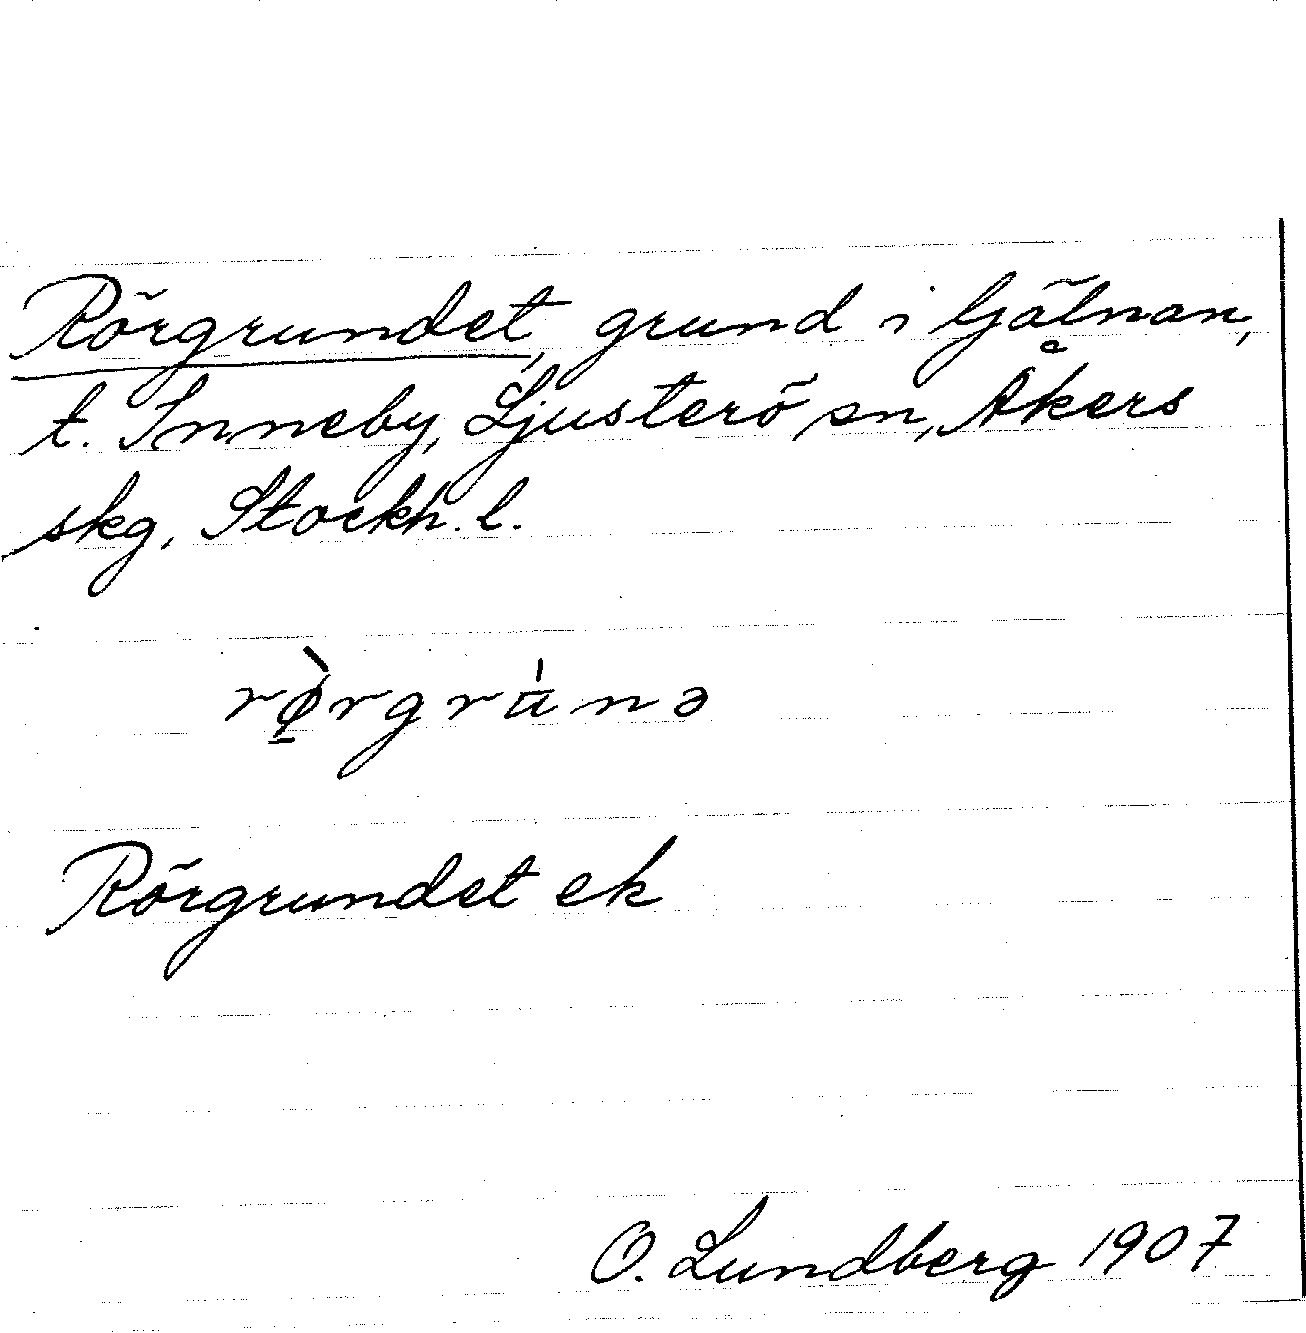 Rörgrundet, grund i Ijälnan,
t. Inneby, Ljusterö sn, Åkers
skg, Stockh. l.
rø̱̀rgru̍nə
Rörgrundet ek
O. Lundberg 1907